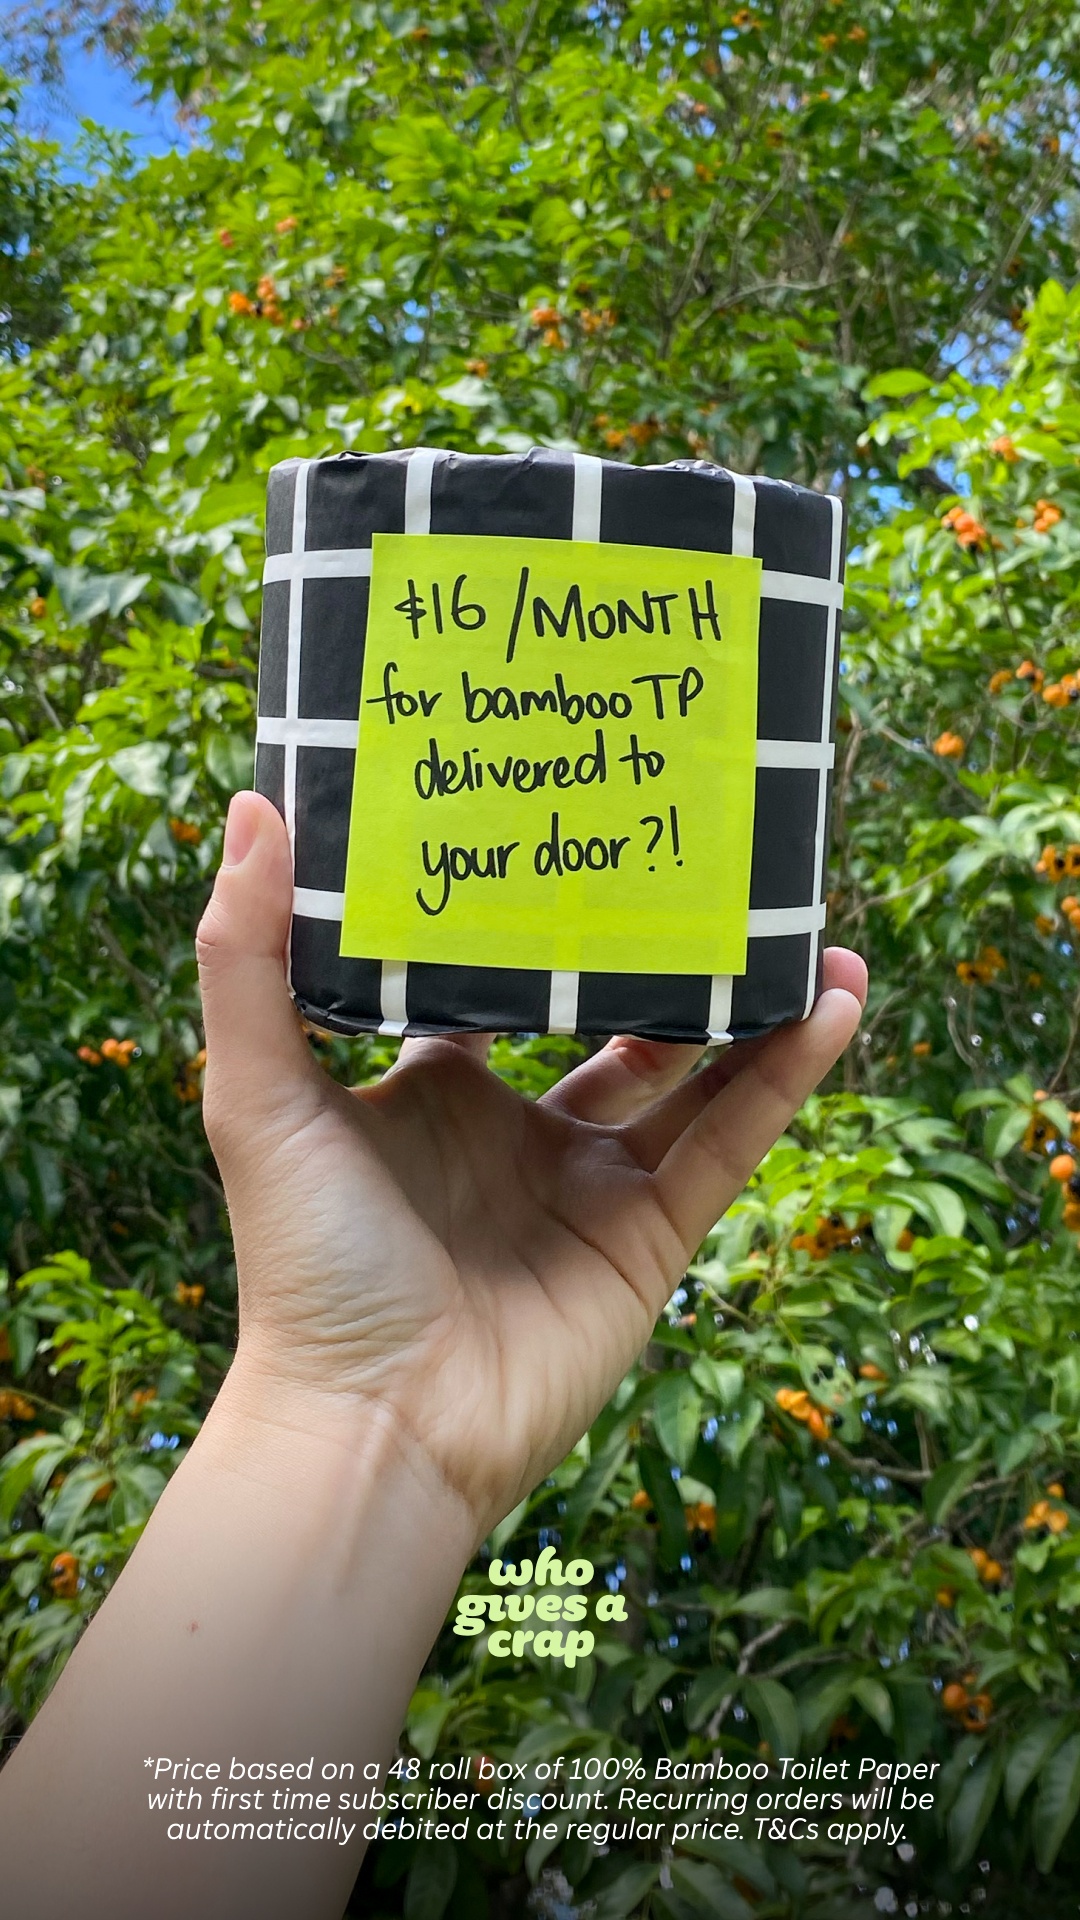 $16 /MONTH
for bamboo TP
delivered to
your door?!
who
gives a
crap
*Price based on a 48 roll box of 100% Bamboo Toilet Paper
with first time subscriber discount. Recurring orders will be
automatically debited at the regular price. T&Cs apply.